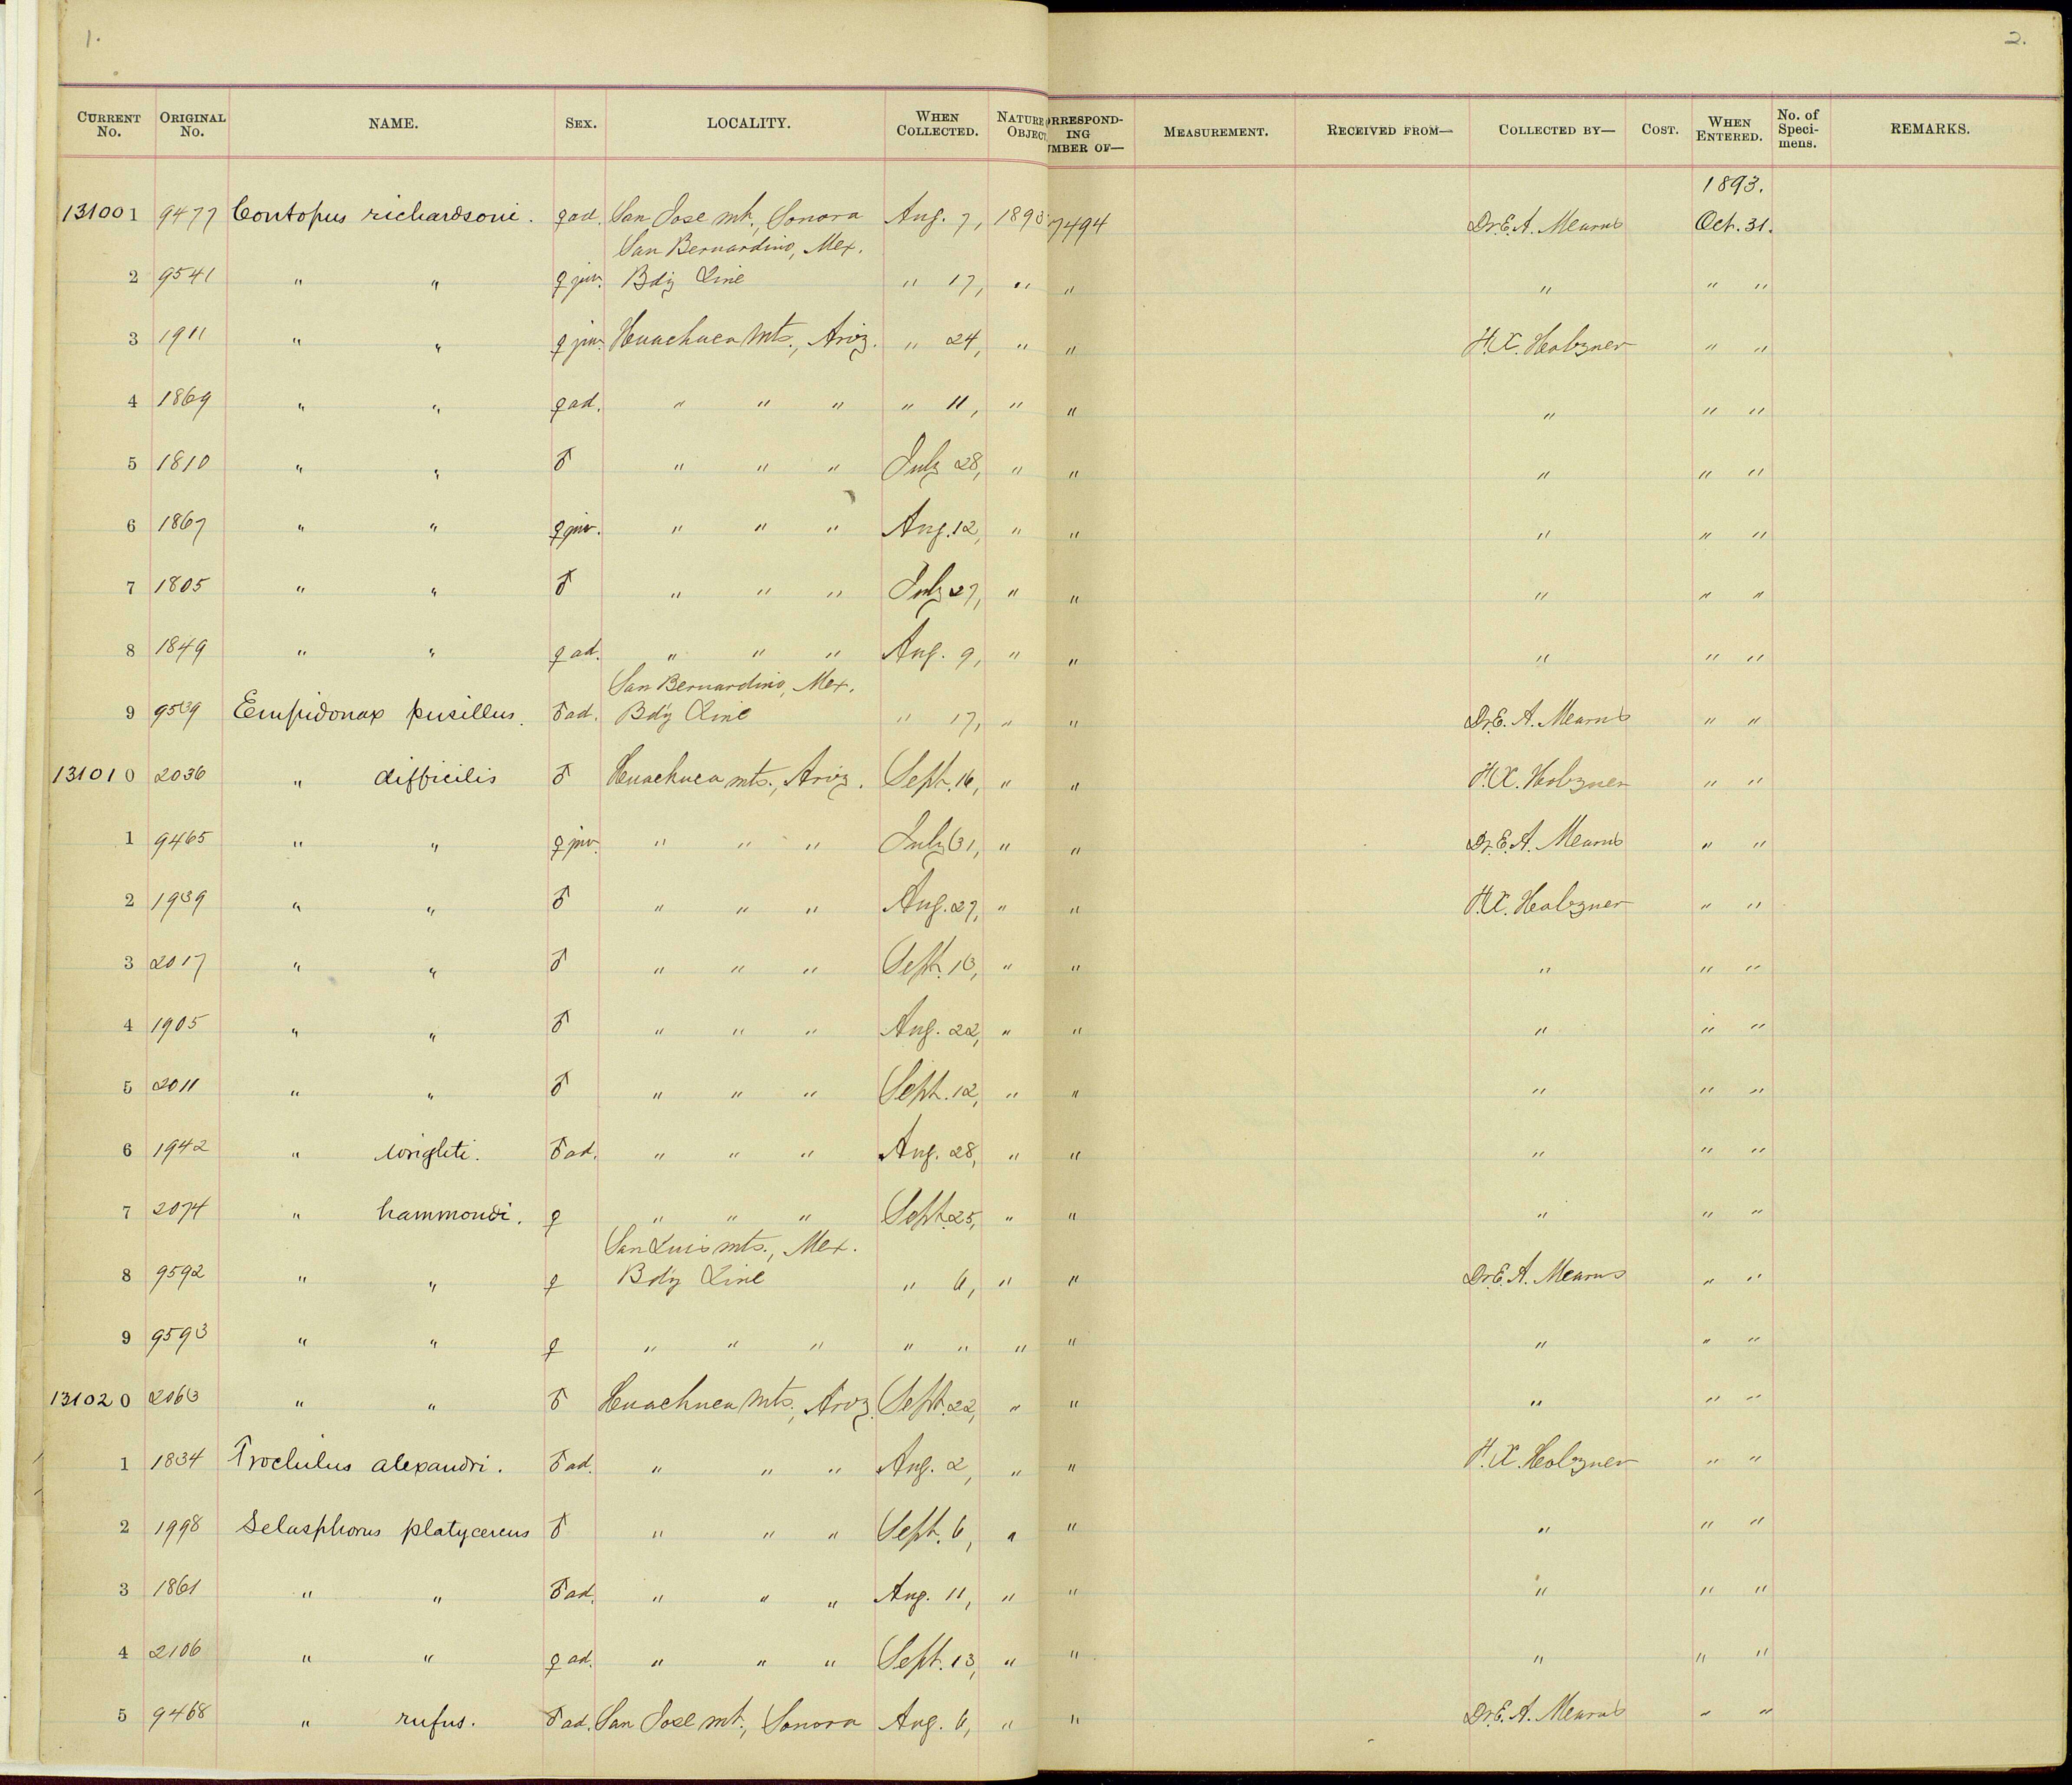 1.
2.
CURRENT No. ORIGINAL No. NAME. SEX. LOCALITY. WHEN COLLECTED. NATURE OBJECT ORRESPOND-ING UMBER OF— MEASUREMENT. RECEIVED FROM— COLLECTED BY— COST. WHEN ENTERED. No. of Speci-mens. REMARKS.
1893.
131001 9477 Contopus richardsoni. ♀ad. San Jose mt., Sonora Aug. 7, 1893 7494 Dr. E. A. Mearns Oct. 31.
San Bernardino, Mex.
2 9541 " " ♀ juv. Bd'y Line " 17, " " " " "
3 1911 " " ♀ juv. Huachuca Mts., Ariz. " 24, " " F. X. Holzner " "
4 1869 " " ♀ad. " " " " 11, " " " " "
5 1810 " " ♂ " " " July 28, " " " " "
6 1867 " " ♀juv. " " " Aug. 12, " " " " "
7 1805 " " ♂ " " " July 27, " " " " "
8 1849 " " ♀ ad. " " " Aug. 9, " " " " "
San Bernardino, Mex.
9 9539 Empidonax pusillus. ♂ad. Bd'y Line " 17, " " Dr. E. A. Mearns " "
131010 2036 " difficilis ♂ Huachuca mts., Ariz. Sept. 16, " " F. X. Holzner " "
1 9465 " " ♀ juv. " " " July 31, " " Dr. E. A. Mearns " "
2 1939 " " ♂ " " " Aug. 27, " " F. X. Holzner " "
3 2017 " " ♂ " " " Sept. 13, " " " " "
4 1905 " " ♂ " " " Aug. 22, " " " " "
5 2011 " " ♂ " " " Sept. 12, " " " " "
6 1942 " wrighti. ♂ad. " " " Aug. 28, " " " " "
7 2074 " hammondi. ♀ " " " Sept. 25, " " " " "
San Luis mts., Mex.
8 9592 " " ♀ Bd'y Line " 6, " " Dr. E. A. Mearns " "
9 9593 " " ♀ " " " " " " " " " "
131020 2063 " " ♂ Huachuca Mts., Ariz. Sept. 22, " " " " "
1 1834 Trochilus alexandri. ♂ad. " " " Aug. 2, " " F. X. Holzner " "
2 1998 Selasphorus platycercus ♂ " " " Sept. 6, " " " " "
3 1861 " " ♂ad. " " " Aug. 11, " " " " "
4 2106 " " ♀ ad. " " " Sept. 13, " " " " "
5 9468 " rufus. ♂ad. San Jose mt., Sonora Aug. 6, " " Dr. E. A. Mearns " "